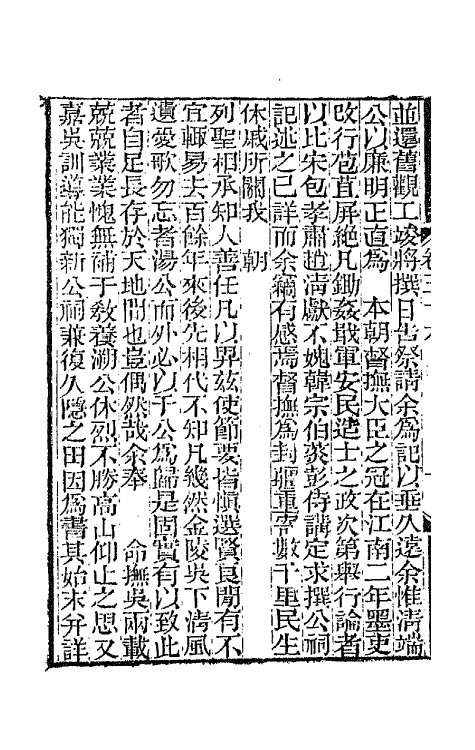 並還舊觀工竣將撰日告祭請余爲記以垂久遠余惟淸端
公以廉明正直爲　本朝督撫大臣之冠在江南二年墨吏
改行苞苴屏絶凡鋤姦戢軍安民造士之政次第舉行論者
以比宋包孝肅趙淸獻不媿韓宗伯菼彭侍講定求撰公祠
記述之已詳而余竊有感焉督撫爲封疆重寄數千里民生
休戚所關我　朝
列聖相承知人善任凡以畀茲使節要皆愼選賢良閒有不
宜輒易去百餘年來後先相代不知凡幾然金陵吳下淸風
遺愛歌勿忘者湯公而外必以于公爲歸是固實有以致此
者自足長存於天地間也豈偶然哉余奉　命撫吳兩載
兢兢業業愧無補于敎養溯公休烈不勝高山仰止之思又
嘉吳訓導能獨新公祠兼復久隱之田因爲書其始末幷詳